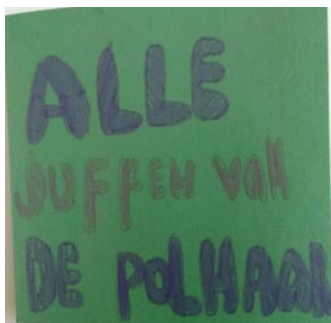 ALLE
JUFFEN VAN
DE POLHAAN